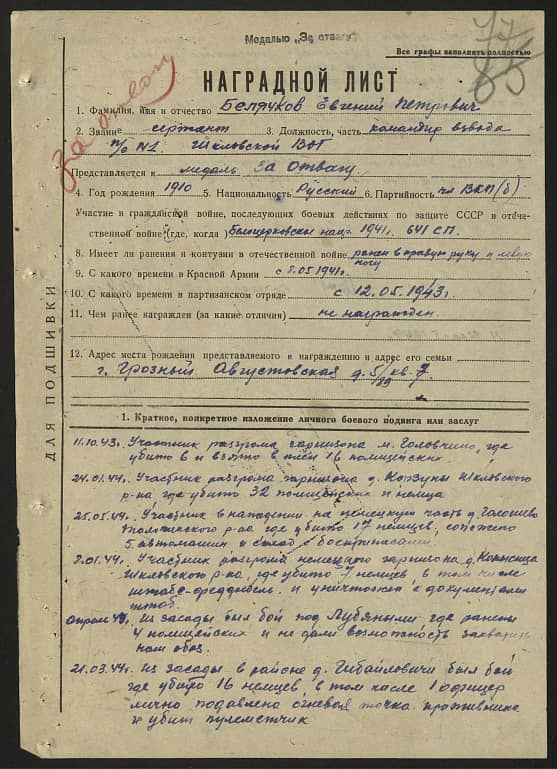 Медалью „За отвагу"
77
85
Все графы заполнять полностью
За отвагу
НАГРАДНОЙ ЛИСТ
1. Фамилия, имя и отчество Белячков Евгений Петрович
2. Звание сержант 3. Должность, часть командир взвода
п/о №1 Шкловской ВОГ
Представляется к медаль За Отвагу
4. Год рождения 1910 5. Национальность Русский 6. Партийность чл ВКП(б)
Участие в гражданской войне, последующих боевых действиях по защите СССР и отече-
ственной войне (где, когда) Белоцерковское 1941г. 641 СП.
8. Имеет ли ранения и контузии в отечественной войне ранен в правую руку и левую
ногу
9. С какого времени в Красной Армии с 05.1941г.
10. С какого времени в партизанском отряде с 12.05.1943г.
11. Чем ранее награжден (за какие отличия) не награжден.
12. Адрес места рождения представляемого к награждению и адрес его семьи
г. Грозный Августовская д. 5/89 кв. 7
ДЛЯ ПОДШИВКИ
1. Краткое, конкретное изложение личного боевого подвига или заслуг
11.10.43г. Участник разгрома гарнизона м. Головчино, где
убито 8 и взято в плен 16 полицейских
24.01.44г. Участник разгрома гарнизона д. Корзуны Шкловского
р-на где убито 32 полицейских и немца
25.05.44г. Участник в нападении на немецкую часть д.
р-на где убито 17 немцев, сожжено
5 автомашин и склад с боеприпасами.
01.44г. Участник разгрома немецкого гарнизона д.
Шкловского р-на, где убито 7 немцев, в том числе
штабс-фредфебель и уничтожен с документами
штаб.
Апрель 44г. Из засады был бой под Лубянами, где ранены
4 полицейских и не дали возможность захватить
нам обоз.
21.03.44г. Из засады в районе д. Гибайловичи был бой
где убито 16 немцев, в том числе 1 офицер
лично подавлена огневая точка противника
и убит пулеметчик